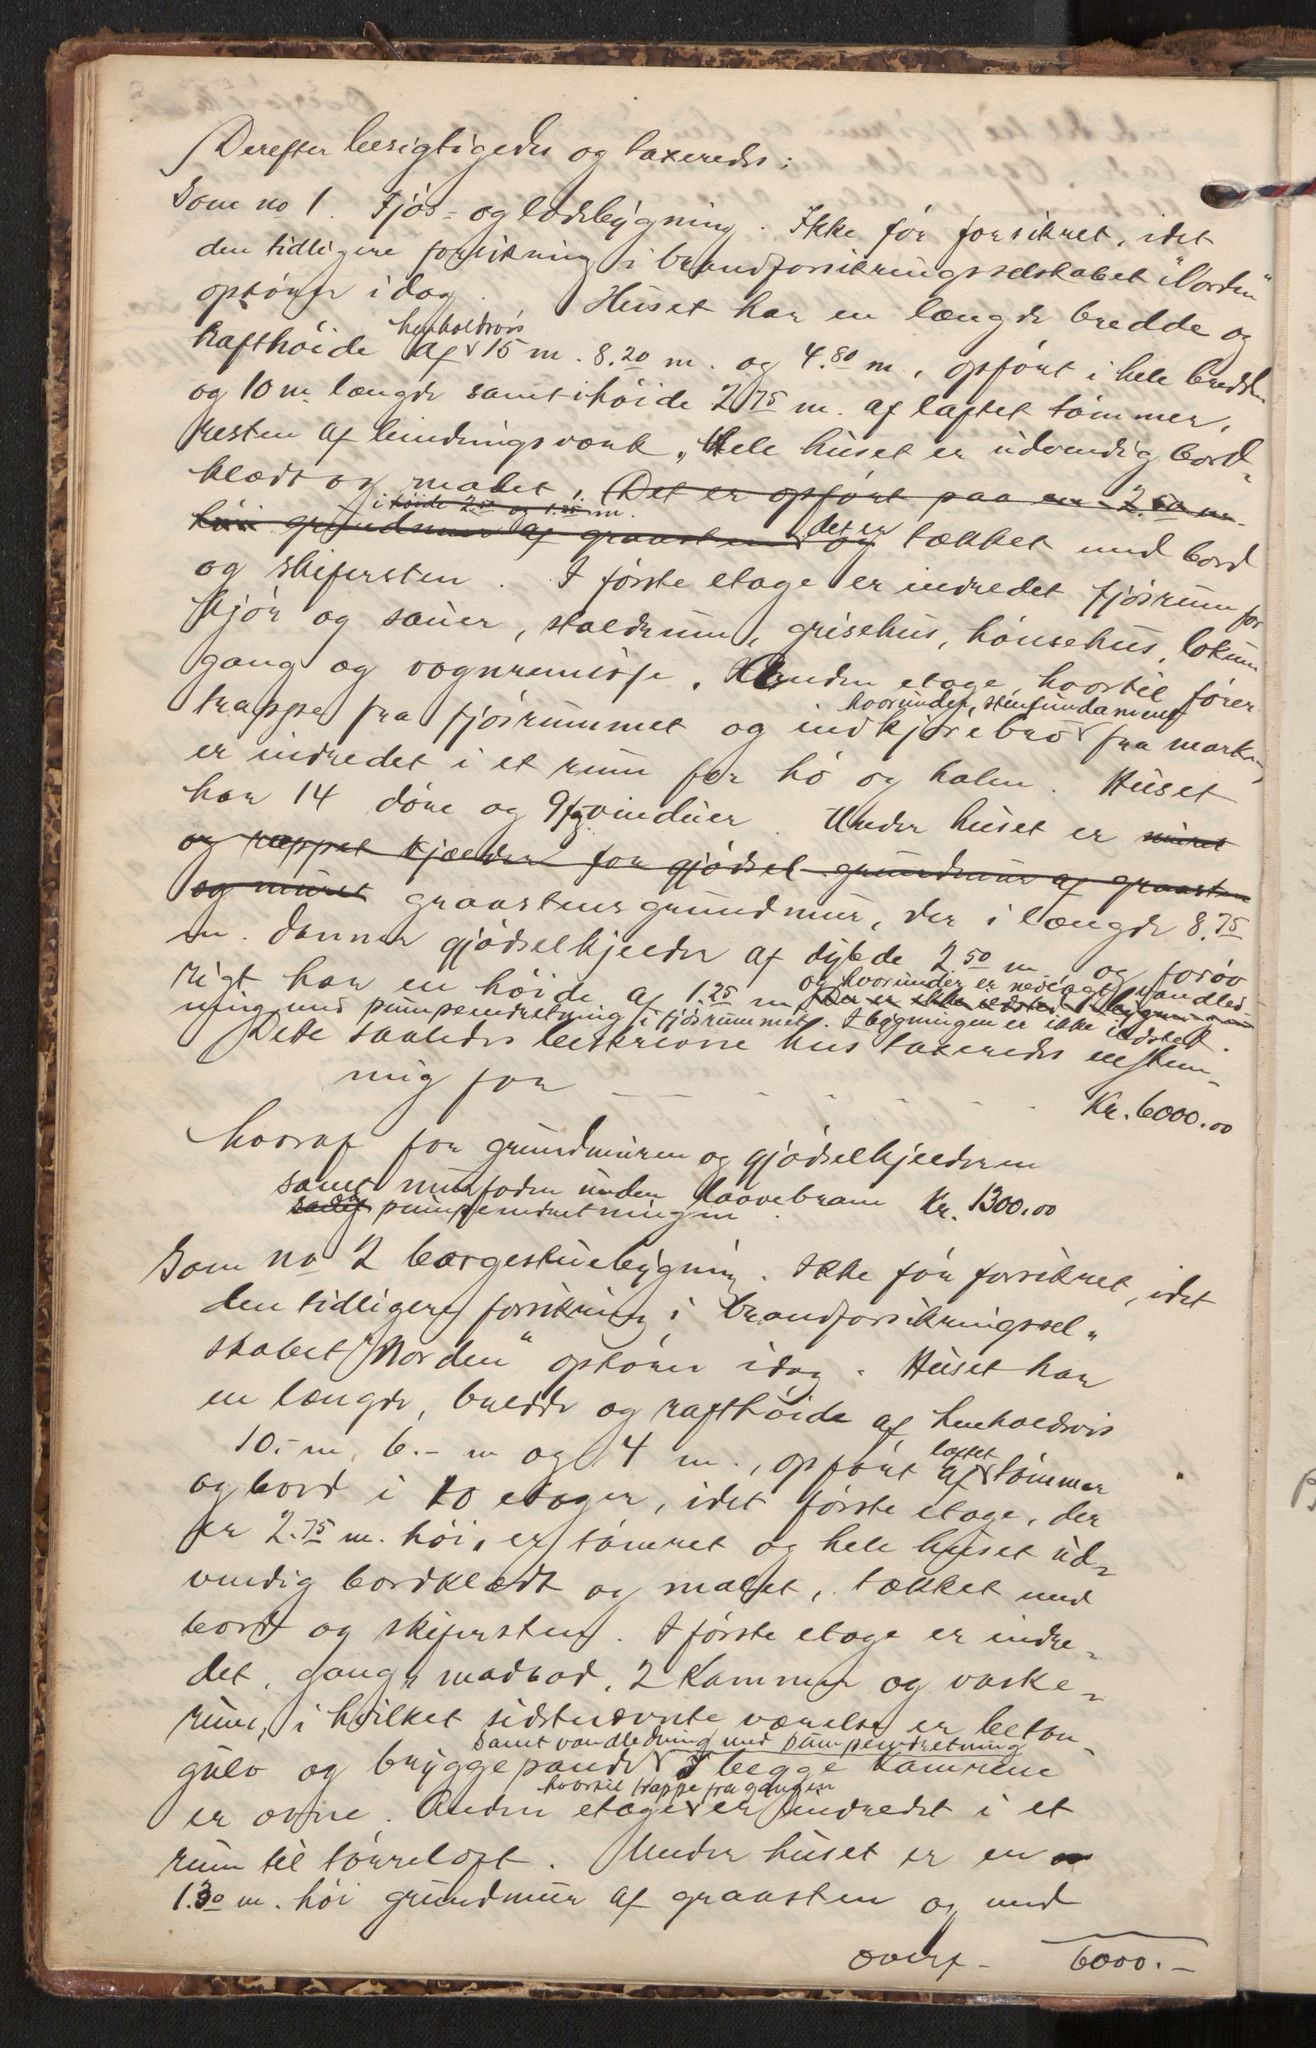 Derefter besigtigedes og taxeredes:
Som no 1. Fjøs- og ladebygning. Ikke før forsikret, idet
den tidligere forsikring i brandforsikringsselskabet "Norden"
ophører idag. Huset har en længde bredde og
rafthøide af henholdsvis 15 m. 8.20 m. og 4.80 m, opført i hele bredden
og 10 m længde samt i høide 2.75 m. af laftet tømmer,
resten af bindingsverk. Hele huset er udvendig bord-
klædt og malet. Det er opført paa en 2.50 m.
i høide 2.50 og 1.25 m.
høi grundmur af graasten og det er tækket med bord
og skifersten. I første etage er indredet fjøsrum for
kjør og sauer, staldrum, grisehus, hønsehus, lokum
gang og vognremisse. Anden etage, hvortil fører
trappe fra fjøsrummet og indkjørebro hvorunder stenfundament fra marken,
er indredet i et rum for hø og halm. Huset
har 14 døre og 9 fg vinduer. Under huset er muret
og rappet kjælder for gjødsel grundmur af graasten
og muret graastens grundmur, der i længde 8.75
m. danner gjødselkjelder af dybde 2.50 m og forøv
rigt har en høide af 1.25 m og hvorunder er nedlagt vandled-
ning med pumpeindretning i fjøsrummet. I bygningen er ikke ildsted.
Dette saaledes beskrevne hus taxeredes enstem-
mig for — — - - - - - Kr. 6000.00
hvoraf for grundmuren og gjødselkjelderen
samt murfoden under laavebroen Kr. 1300.00
pumpeindretningen.
Som no 2 borgestuebygning. Ikke før forsikret, idet
den tidligere forsikring i brandforsikringssel-
skabet "Norden" ophører idag. Huset har
en længde, bredde og rafthøide af henholdsvis
10.- m, 6.- m og 4 m., opført af laftet tømmer
og bord i to etager, idet første etage, der
er 2.75 m. høi, er tømret og hele huset ud-
vendig bordklædt og malet, tækket med
bord og skifersten. I første etage er indre-
det, gang, madbod, 2 kammer og vaske-
rum, i hvilket sidstnævnte værelse er beton-
samt vandledning med pumpeindretning
gulv og bryggepande. I begge kamrene
hvortil trappe fra gangen
er ovne. Anden etage er indredet i et
rum til tørreloft. Under huset er en
1.30 m. høi grundmur af graasten og med
overf - 6000.-